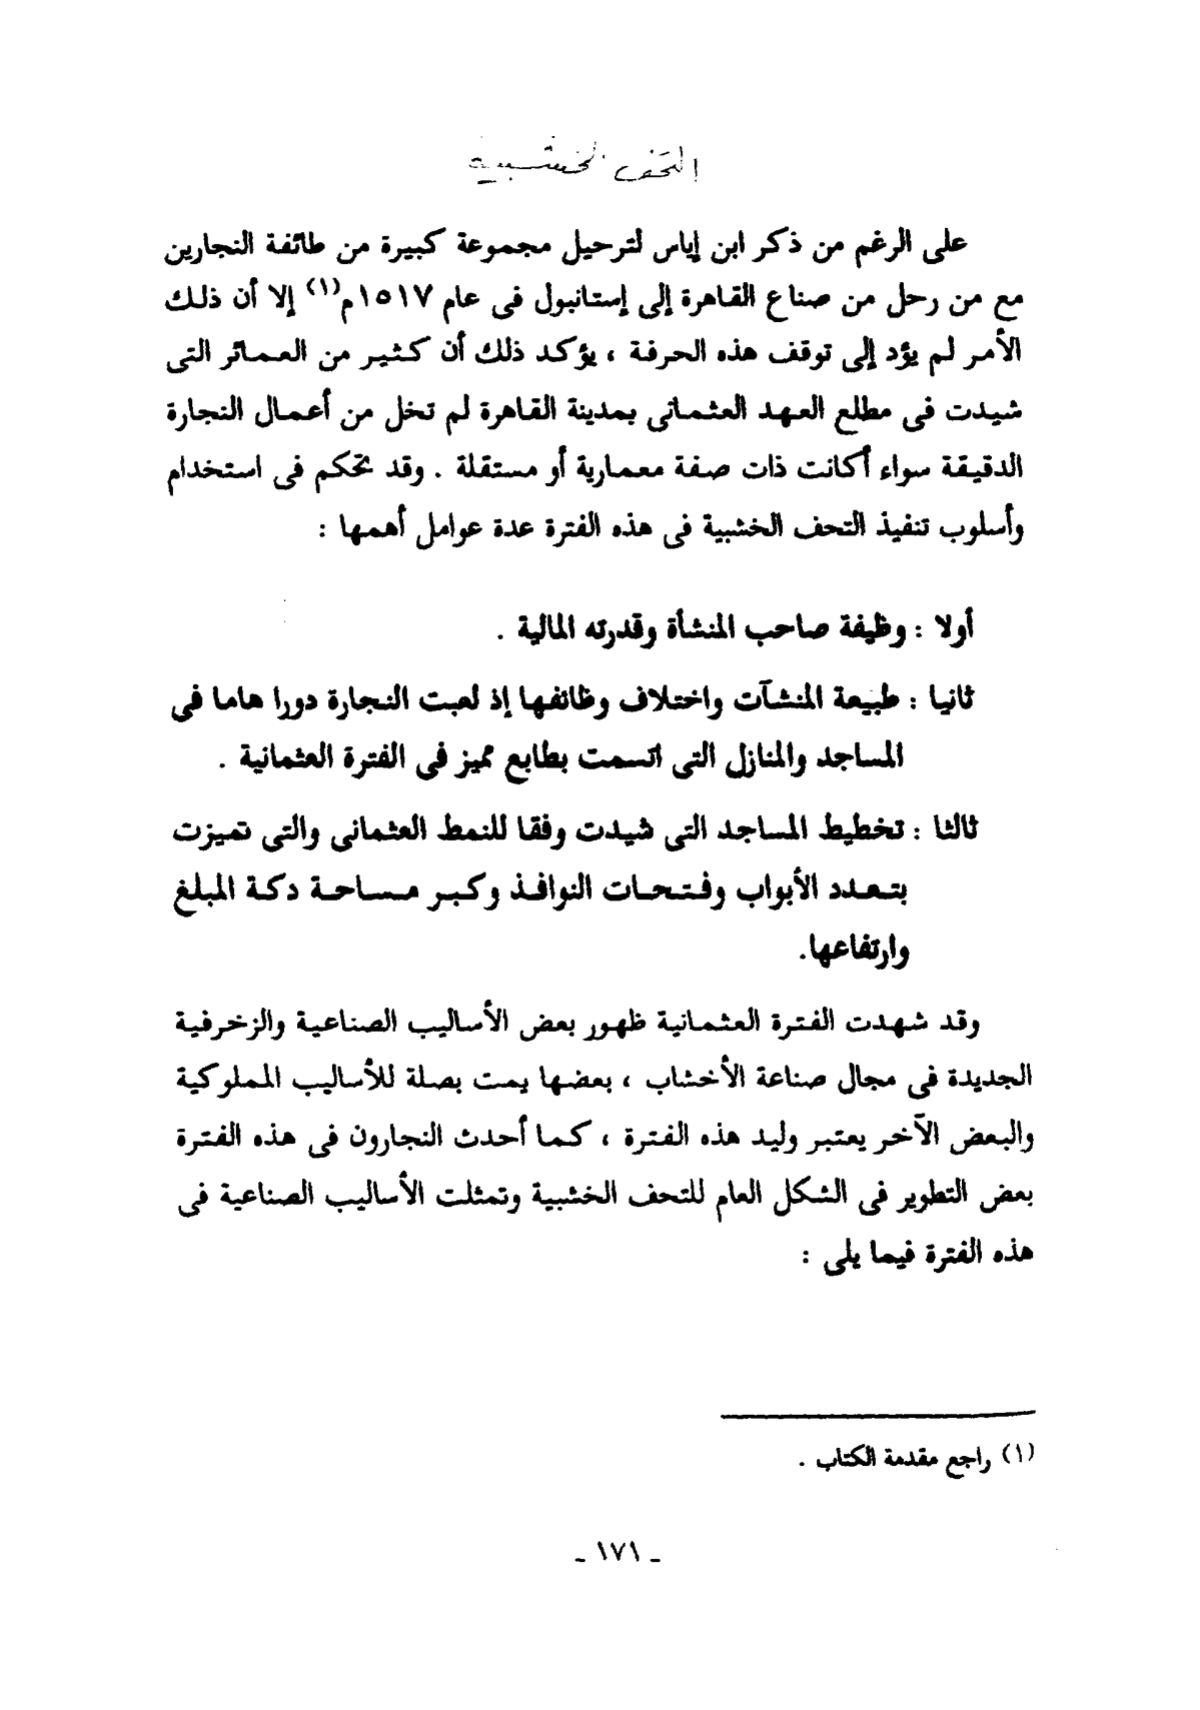 التحف الخشبية
على الرغم من ذكر ابن إياس لترحيل مجموعة كبيرة من طائفة النجارين
مع من رحل من صناع القاهرة إلى إستانبول فى عام ١٥١٧م(١) إلا أن ذلك
الأمر لم يؤد إلى توقف هذه الحرفة ، يؤكد ذلك أن كثير من العمائر التى
شيدت فى مطلع العهد العثمانى بمدينة القاهرة لم تخل من أعمال النجارة
الدقيقة سواء أكانت ذات صفة معمارية أو مستقلة . وقد تحكم فى استخدام
وأسلوب تنفيذ التحف الخشبية فى هذه الفترة عدة عوامل أهمها :
أولا : وظيفة صاحب المنشأة وقدرته المالية .
ثانيا : طبيعة المنشآت واختلاف وظائفها إذ لعبت النجارة دورا هاما فى
المساجد والمنازل التى اتسمت بطابع مميز فى الفترة العثمانية .
ثالثا : تخطيط المساجد التى شيدت وفقا للنمط العثمانى والتى تميزت
بتعدد الأبواب وفتحات النوافذ وكبر مساحة دكة المبلغ
وارتفاعها.
وقد شهدت الفترة العثمانية ظهور بعض الأساليب الصناعية والزخرفية
الجديدة فى مجال صناعة الأخشاب ، بعضها يمت بصلة للأساليب المملوكية
والبعض الآخر يعتبر وليد هذه الفترة ، كما أحدث النجارون فى هذه الفترة
بعض التطوير فى الشكل العام للتحف الخشبية وتمثلت الأساليب الصناعية فى
هذه الفترة فيما يلى :
(١) راجع مقدمة الكتاب .
ـ ١٧١ ـ